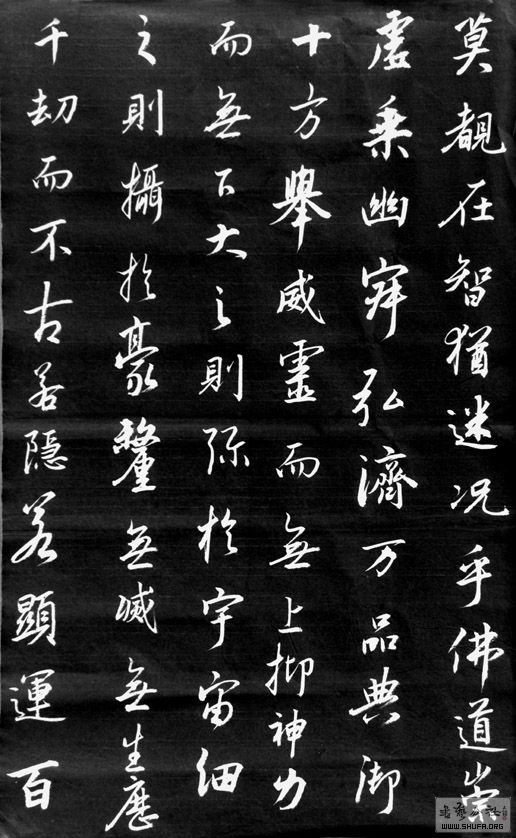 莫覩在智猶迷况乎佛道崇
虚乗幽寂弘濟万品典御
十方舉威靈而無上抑神力
而無下大之則弥於宇宙細
之則攝於豪釐無滅無生歷
千劫而不古若隱若顯運百
WWW.SHUFA.ORG